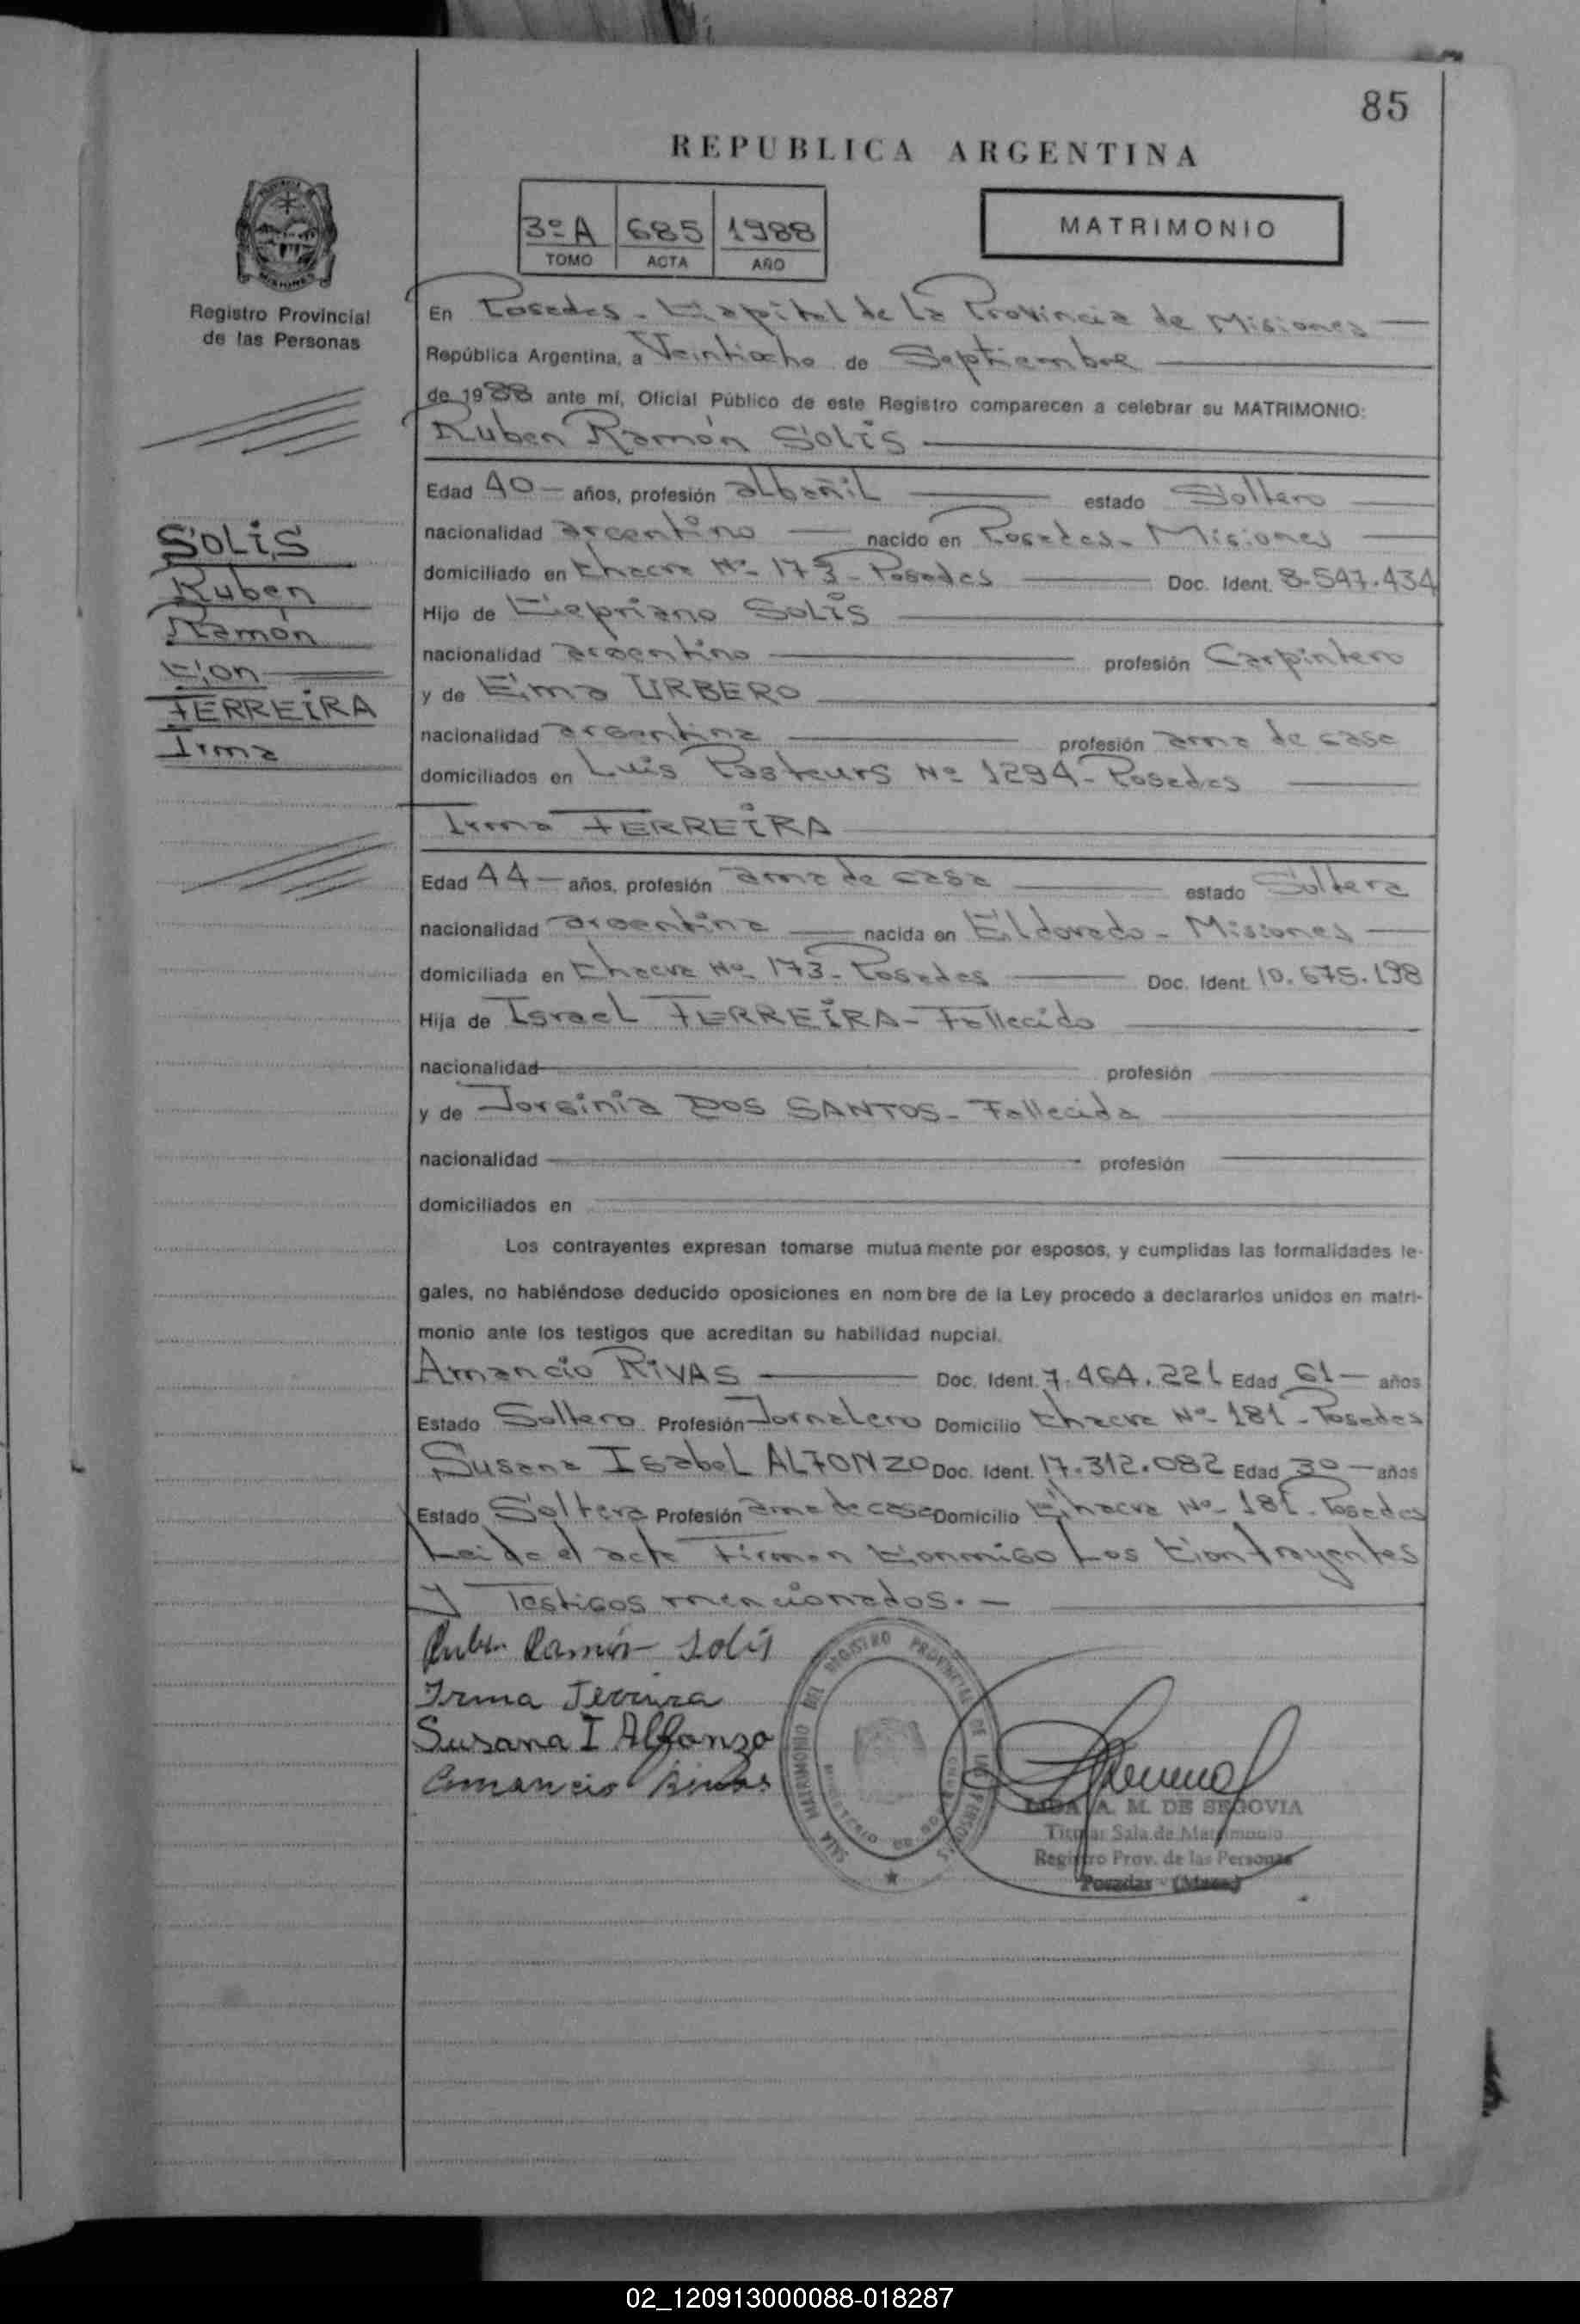 85
REPUBLICA ARGENTINA
3º A 685 1988
TOMO ACTA AÑO
MATRIMONIO
Registro Provincial
de las Personas
En Posadas - Capital de la Provincia de Misiones
República Argentina, a Veintiocho de Septiembre
de 1988 ante mí, Oficial Público de este Registro comparecen a celebrar su MATRIMONIO:
Ruben Ramón SOLIS
Edad 40 años, profesión albañil estado Soltero
nacionalidad argentino nacido en Posadas - Misiones
domiciliado en Chacra Nº 173 - Posadas Doc. Ident. 8.547.434
Hijo de Cipriano SOLIS
nacionalidad argentino profesión Carpintero
y de Ema URBERO
nacionalidad argentina profesión ama de casa
domiciliados en Luis Pasteurs Nº 1294 - Posadas
SOLIS
Ruben
Ramón
Con
FERREIRA
Irma
Irma FERREIRA
Edad 44 años, profesión ama de casa estado Soltera
nacionalidad argentina nacida en Eldorado - Misiones
domiciliada en Chacra Nº 173 - Posadas Doc. Ident. 10.675.198
Hija de Israel FERREIRA - Fallecido
nacionalidad profesión
y de Jorginia DOS SANTOS - Fallecida
nacionalidad profesión
domiciliados en
Los contrayentes expresan tomarse mutuamente por esposos, y cumplidas las formalidades le-
gales, no habiéndose deducido oposiciones en nombre de la Ley procedo a declararlos unidos en matri-
monio ante los testigos que acreditan su habilidad nupcial.
Amancio RIVAS Doc. Ident. 7.464.221 Edad 61 años
Estado Soltero Profesión Jornalero Domicilio Chacra Nº 181 - Posadas
Susana Isabel ALFONZO Doc. Ident. 17.312.082 Edad 30 años
Estado Soltera Profesión ama de casa Domicilio Chacra Nº 181 - Posadas
Leida el acta Firman Conmigo Los Contrayentes
y Testigos mencionados.-
Ruben Ramón Solís
Irma Ferreira
Susana I Alfonzo
Amancio Rivas
SALA MATRIMONIO DEL REGISTRO PROVINCIAL DE LAS PERSONAS
A. M. DE SEGOVIA
Titular Sala de Matrimonio
Registro Prov. de las Personas
Posadas - (Mnes.)
02_120913000088-018287